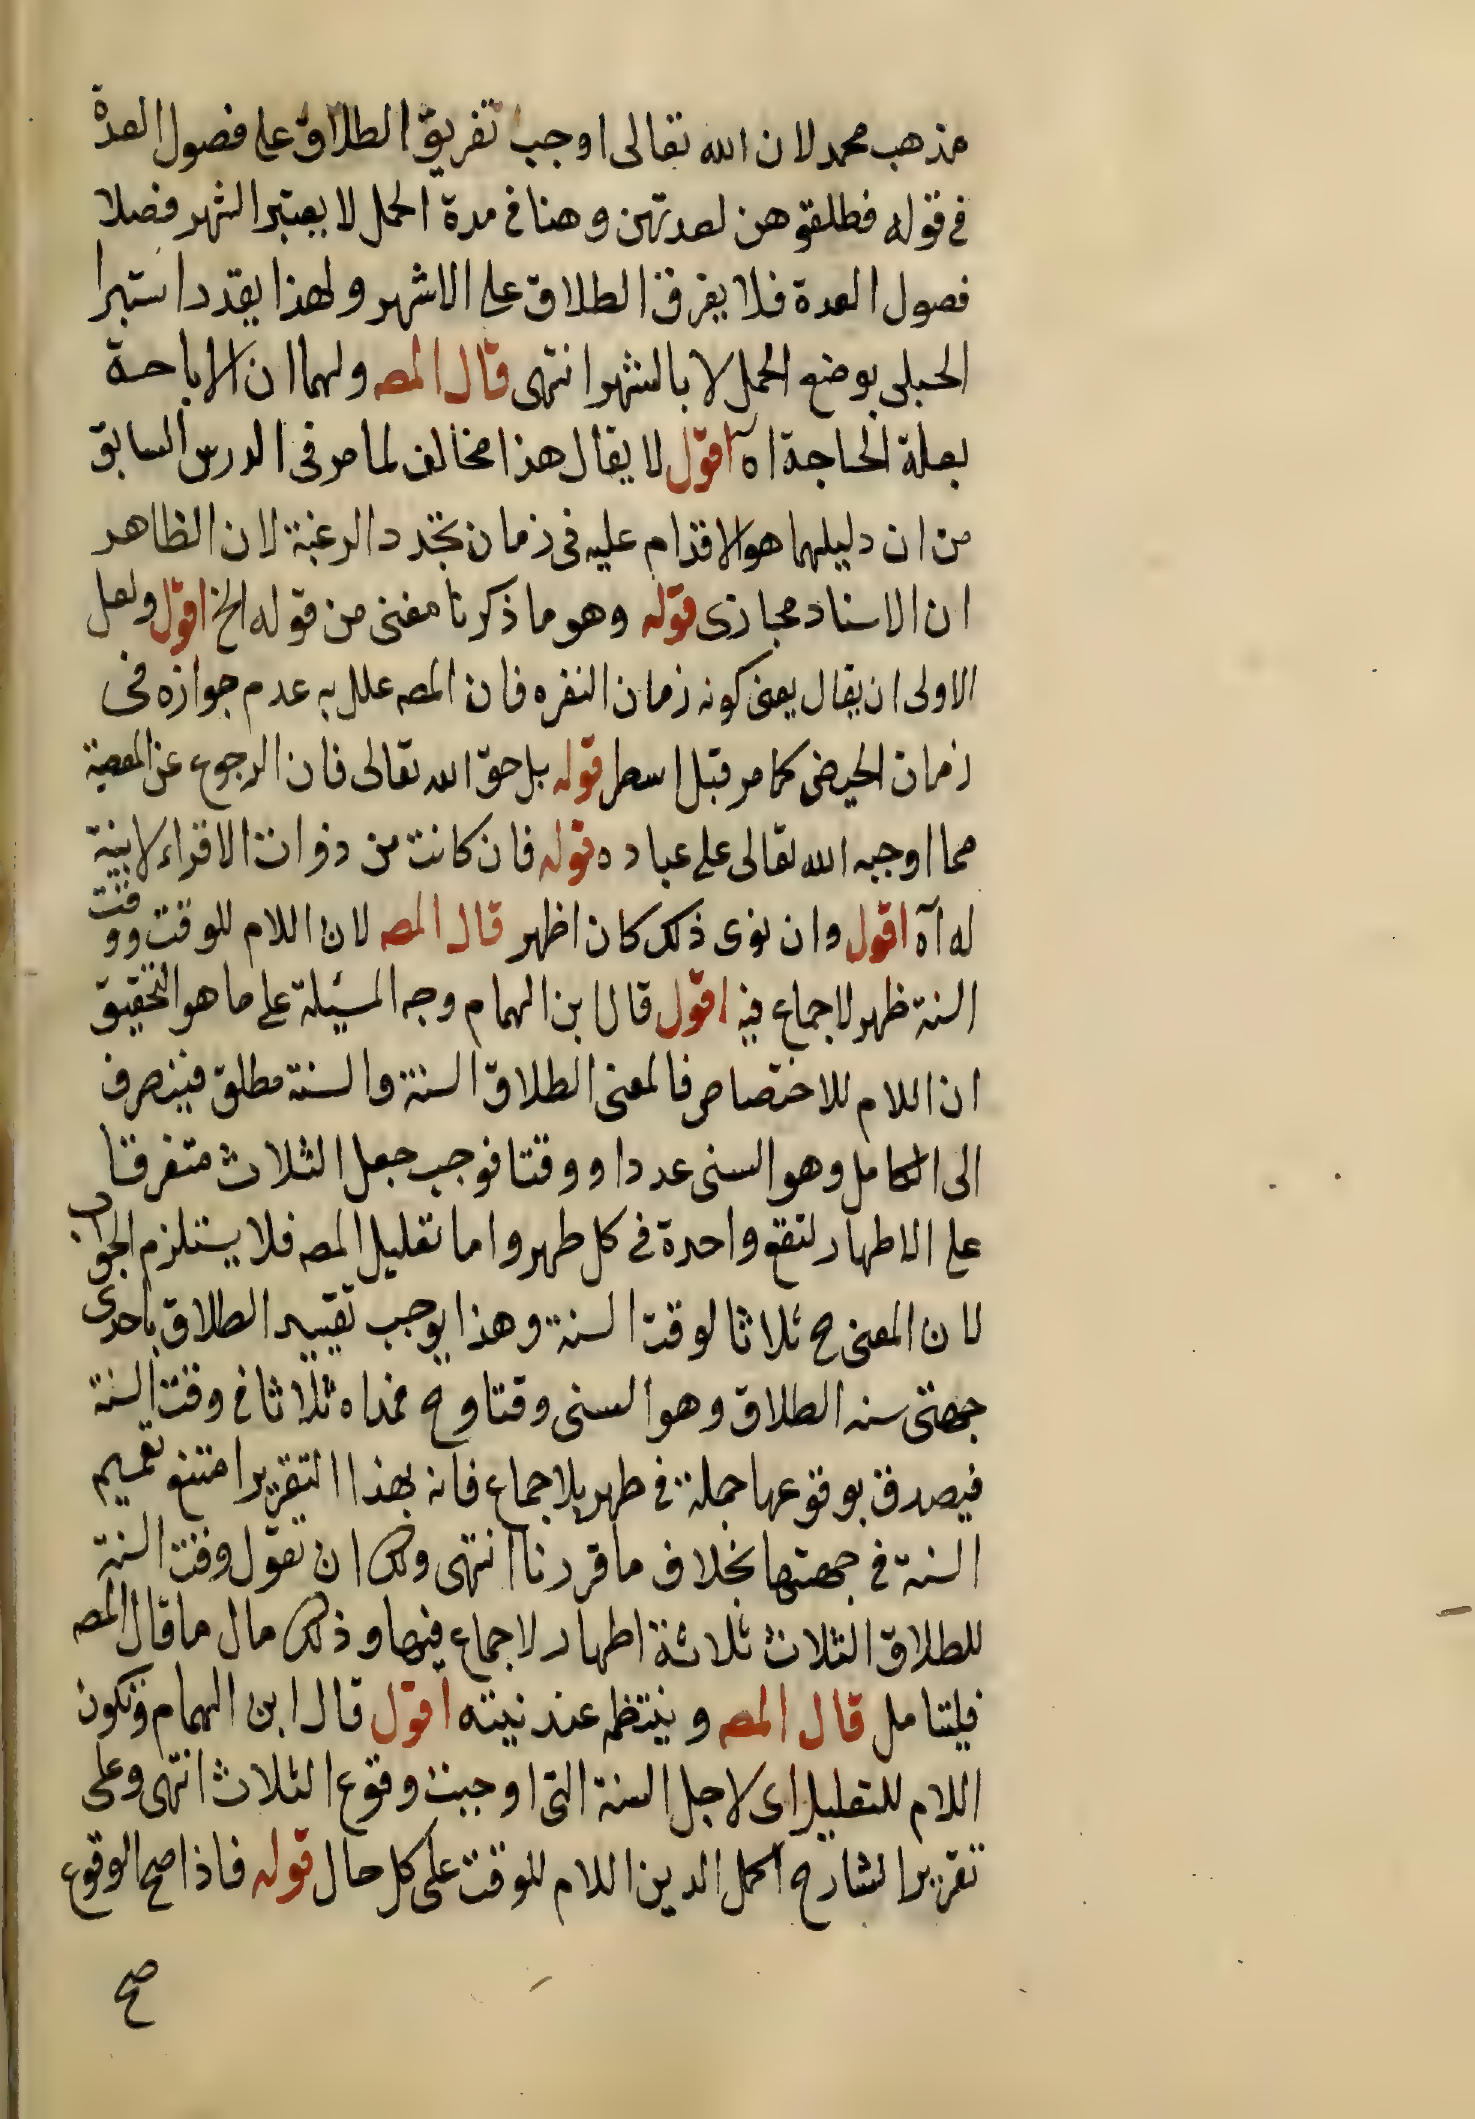 مذهب محمد لان الله تعالى اوجب تفريق الطلاق على فصول العدة
فى قوله فطلقوهن لعدتهن وهنا فى مدة الحمل لا يعتبر الشهر فصلا
فصول العدة فلا يفرق الطلاق على الاشهر ولهذا يقدد استبرا
الحبلى بوضع الحمل لا بالشهر انتهى قال المصه ولهما ان الاباحة
بعلة الحاجة اه اقول لا يقال هذا مخالف لما مر فى الدرس السابق
من ان دليلهما هو الاقدام عليه فى زمان تجدد الرغبة لان الظاهر
ان الاسناد مجازى قوله وهو ما ذكرنا مفنى من قوله الخ اقول ولعل
الاولى ان يقال يعنى كونه زمان النفره فان المصه علل به عدم جوازه فى
زمان الحيض كما مر قبل اسطر قوله بل حق الله تعالى فان الرجوع عن المعصية
مما اوجبه الله تعالى على عباده قوله فان كانت من ذوات الاقراء لا نية
له آه اقول وان نوى ذلك كان اظهر قال المصه لان اللام للوقت ووقت
السنة ظهر لا جماع فيه اقول قال ابن الهمام وجه المسئلة على ما هو التحقيق
ان اللام للاختصاص فالمعنى الطلاق السنة والسنة مطلق فينصرف
الى الكامل وهو السنى عددا ووقتا فوجب جعل الثلاث متفرقا
على الاطهار لتقع واحدة فى كل طهر واما تعليل المصه فلا يستلزم الجواب
لان المعنى ح ثلاثا لوقت السنة وهذا يوجب تقييد الطلاق باحدى
جهتى سنه الطلاق وهو السنى وقتا وح فمداه ثلاثا فى وقت السنة
فيصدق بوقوعها جملة فى طهر بلا جماع فانه بهذا التقرير امتنع تعميم
السنة فى جهتها بخلاف ما قررنا انتهى ولك ان تقول وقت السنة
للطلاق الثلاث ثلاثة اطهار لا جماع فيها وذلك مال ما قال المصه
فليتامل قال المصه وينتظمه عند نيته اقول قال ابن الهمام وتكون
اللام للتعليل اى لاجل السنة التى اوجبت وقوع الثلاث انتهى وعلى
تقرير الشارح اكمل الدين اللام للوقت على كل حال قوله فاذا صح الوقوع
صح